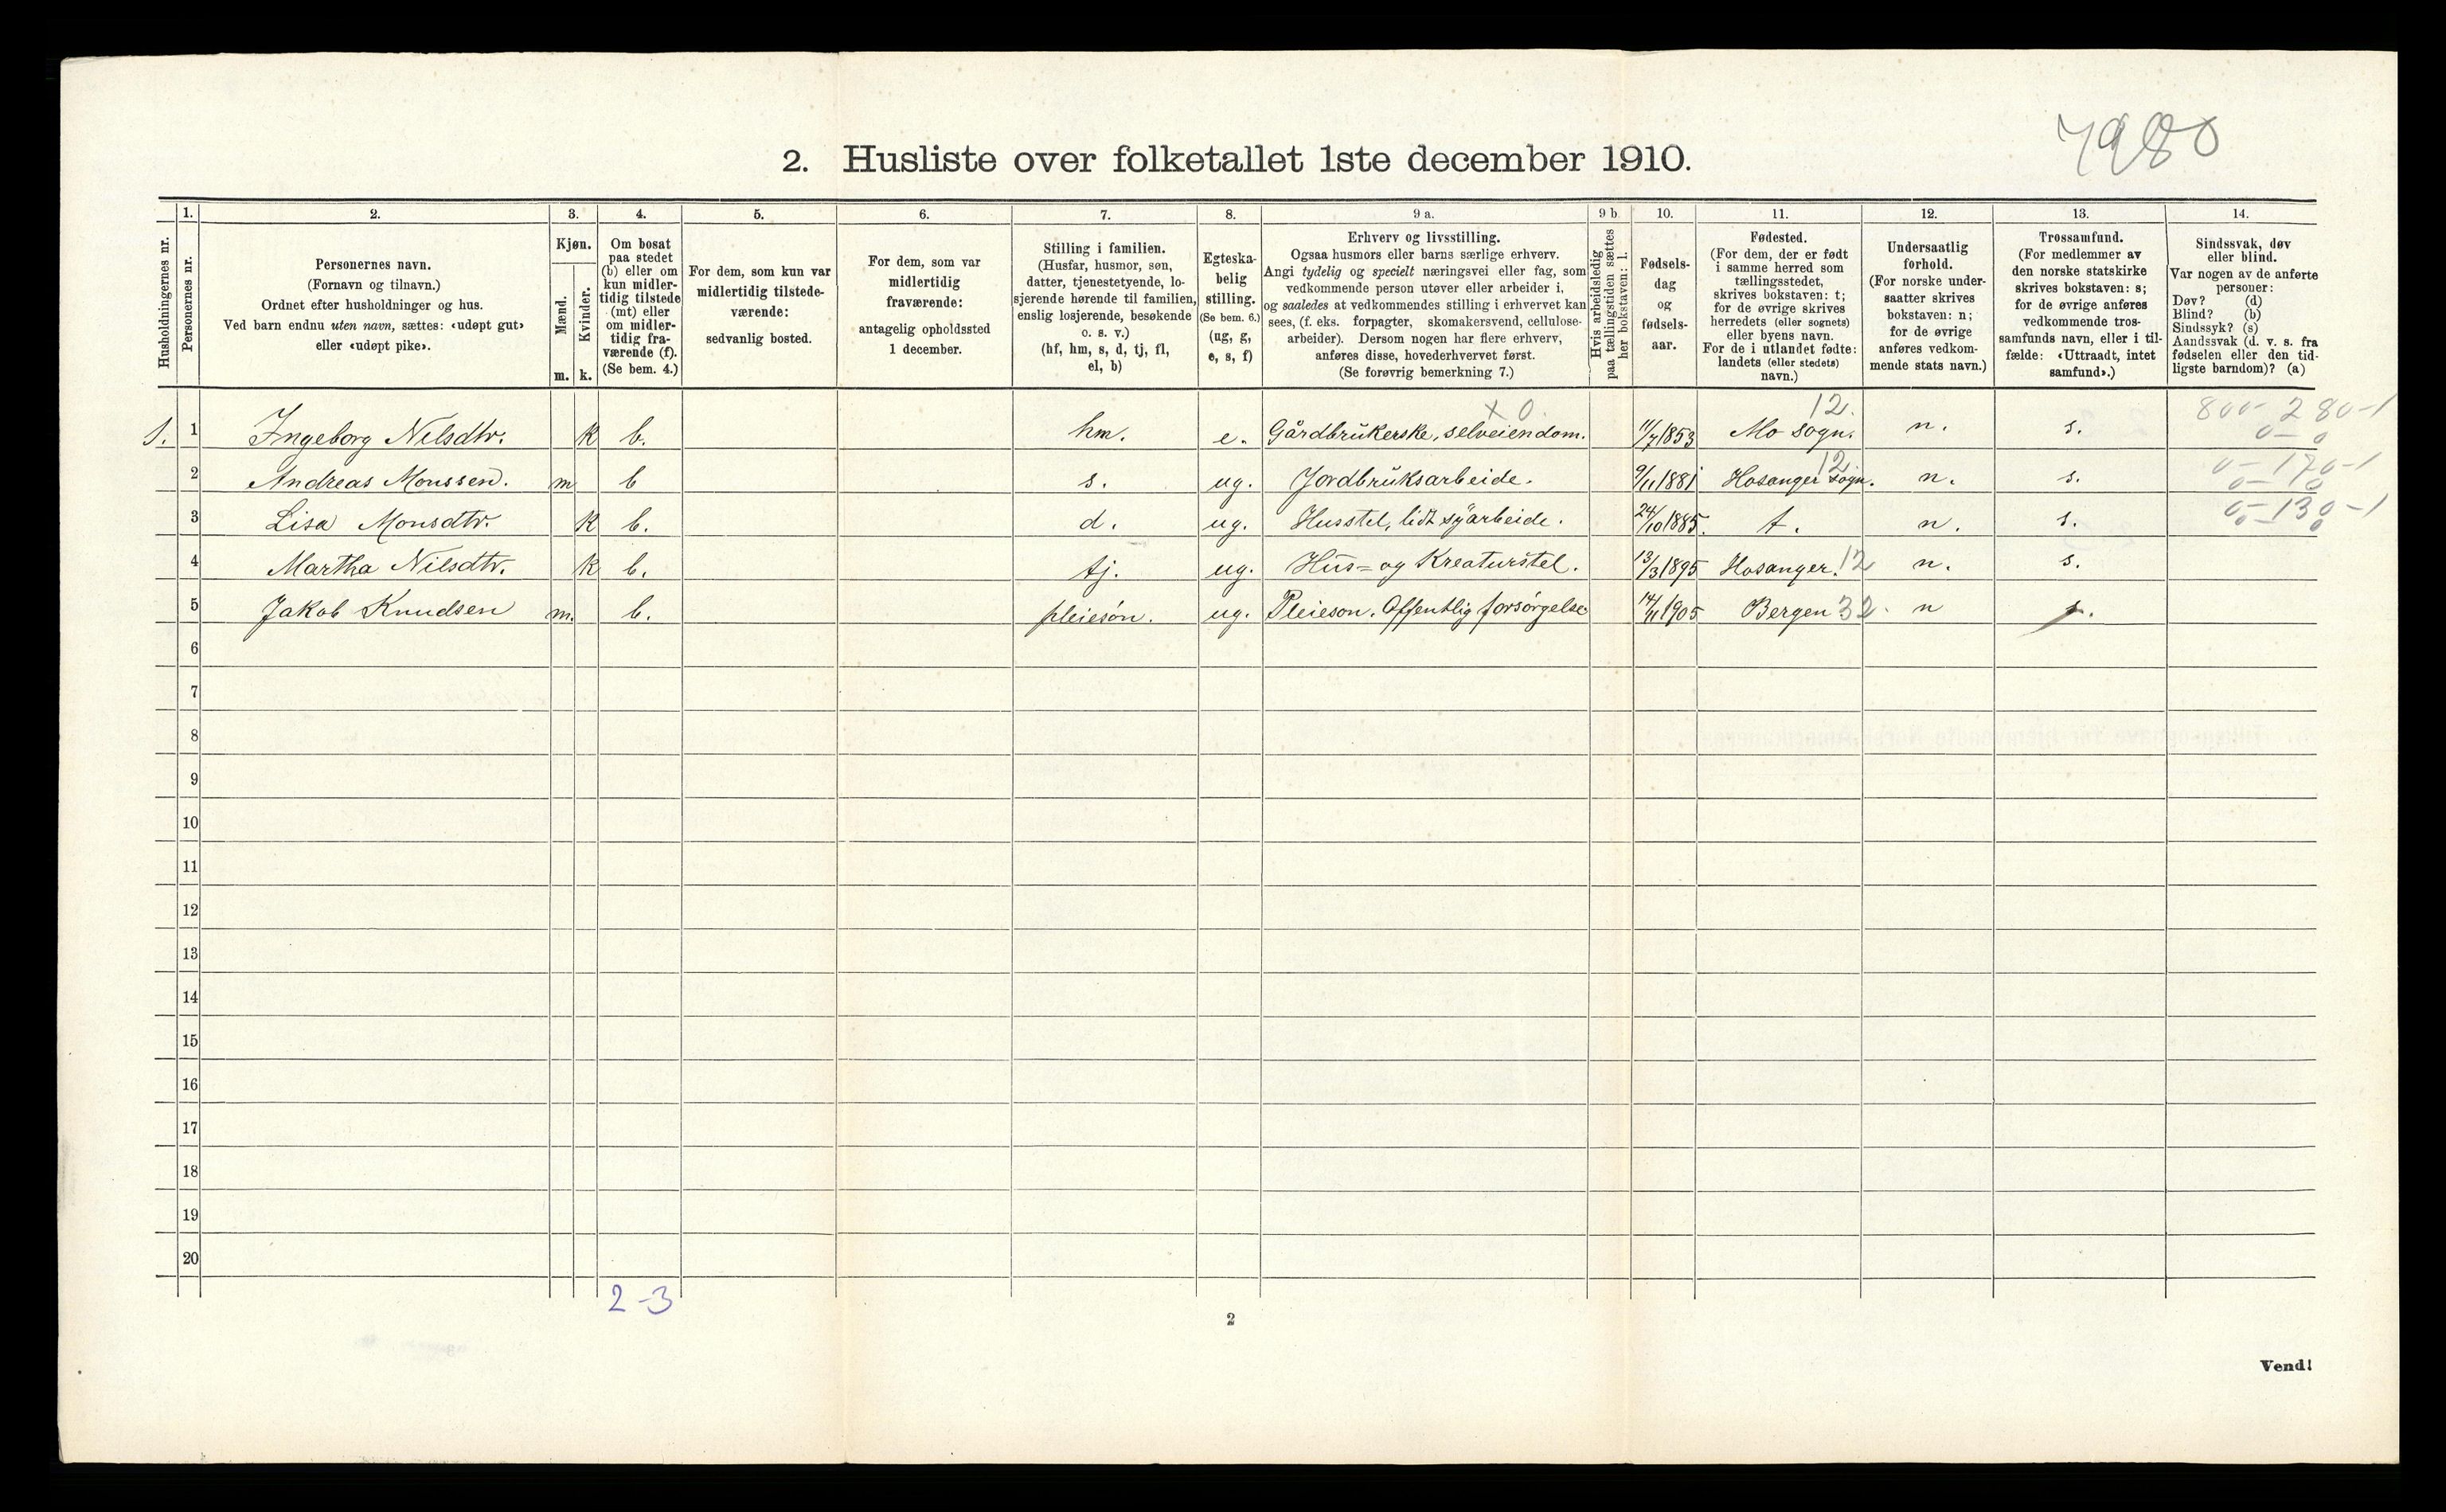 7980
2. Husliste over folketallet 1ste december 1910.
1. 2. 3. 4. 5. 6. 7. 8. 9 a. 9 b. 10. 11. 12. 13. 14.
Husholdningernes nr.
Personernes nr.
Personernes navn.
(Fornavn og tilnavn.)
Ordnet efter husholdninger og hus.
Ved barn endnu uten navn, sættes: «udøpt gut»
eller «udøpt pike».
Kjøn.
Mænd.
Kvinder.
m. k.
Om bosat
paa stedet
(b) eller om
kun midler-
tidig tilstede
(mt) eller
om midler-
tidig fra-
værende (f).
(Se bem. 4.)
For dem, som kun var
midlertidig tilstede-
værende:
sedvanlig bosted.
For dem, som var
midlertidig
fraværende:
antagelig opholdssted
1 december.
Stilling i familien.
(Husfar, husmor, søn,
datter, tjenestetyende, lo-
sjerende hørende til familien,
enslig losjerende, besøkende
o. s. v.)
(hf, hm, s, d, tj, fl,
el, b)
Egteska-
belig
stilling.
(Se bem. 6.)
(ug, g,
e, s, f)
Erhverv og livsstilling.
Ogsaa husmors eller barns særlige erhverv.
Angi tydelig og specielt næringsvei eller fag, som
vedkommende person utøver eller arbeider i,
og saaledes at vedkommendes stilling i erhvervet kan
sees, (f. eks. forpagter, skomakersvend, cellulose-
arbeider). Dersom nogen har flere erhverv,
anføres disse, hovederhvervet først.
(Se forøvrig bemerkning 7.)
Hvis arbeidsledig
paa tællingstiden sættes
her bokstaven: l.
Fødsels-
dag
og
fødsels-
aar.
Fødested.
(For dem, der er født
i samme herred som
tællingsstedet,
skrives bokstaven: t;
for de øvrige skrives
herredets (eller sognets)
eller byens navn.
For de i utlandet fødte:
landets (eller stedets)
navn.)
Undersaatlig
forhold.
(For norske under-
saatter skrives
bokstaven: n;
for de øvrige
anføres vedkom-
mende stats navn.)
Trossamfund.
(For medlemmer av
den norske statskirke
skrives bokstaven: s;
for de øvrige anføres
vedkommende tros-
samfunds navn, eller i til-
fælde: «Uttraadt, intet
samfund».)
Sindssvak, døv
eller blind.
Var nogen av de anførte
personer:
Døv? (d)
Blind? (b)
Sindssyk? (s)
Aandssvak (d. v. s. fra
fødselen eller den tid-
ligste barndom)? (a)
x 0. 12. 800 - 280 - 1
1. 1 Ingeborg Nilsdtr. k b. hm. e. Gårdbrukerske, selveiendom. 11/7 1853 Mo sogn. n. s. 0 - 0
12. 0 - 170 - 1
2 Andreas Monssen. m b s. ug. Jordbruksarbeide. 9/11 1881 Hosanger sogn. n. s. 0 - 0
0 - 130 - 1
3 Lisa Monsdtr. k b. d. ug. Husstel, lidt syarbeide. 24/10 1885. t. n. s. 0 - 0
4 Martha Nilsdtr. k b. tj. ug. Hus= og Kreaturstel. 13/3 1895 Hosanger. 12 n. s.
5 Jakob Knudsen m. b. pleiesøn. ug. Pleiesøn. Offentlig forsørgelse 14/11 1905 Bergen 32. n s.
6
7
8
9
10
11
12
13
14
15
16
17
18
19
20
2 - 3
2
Vend!